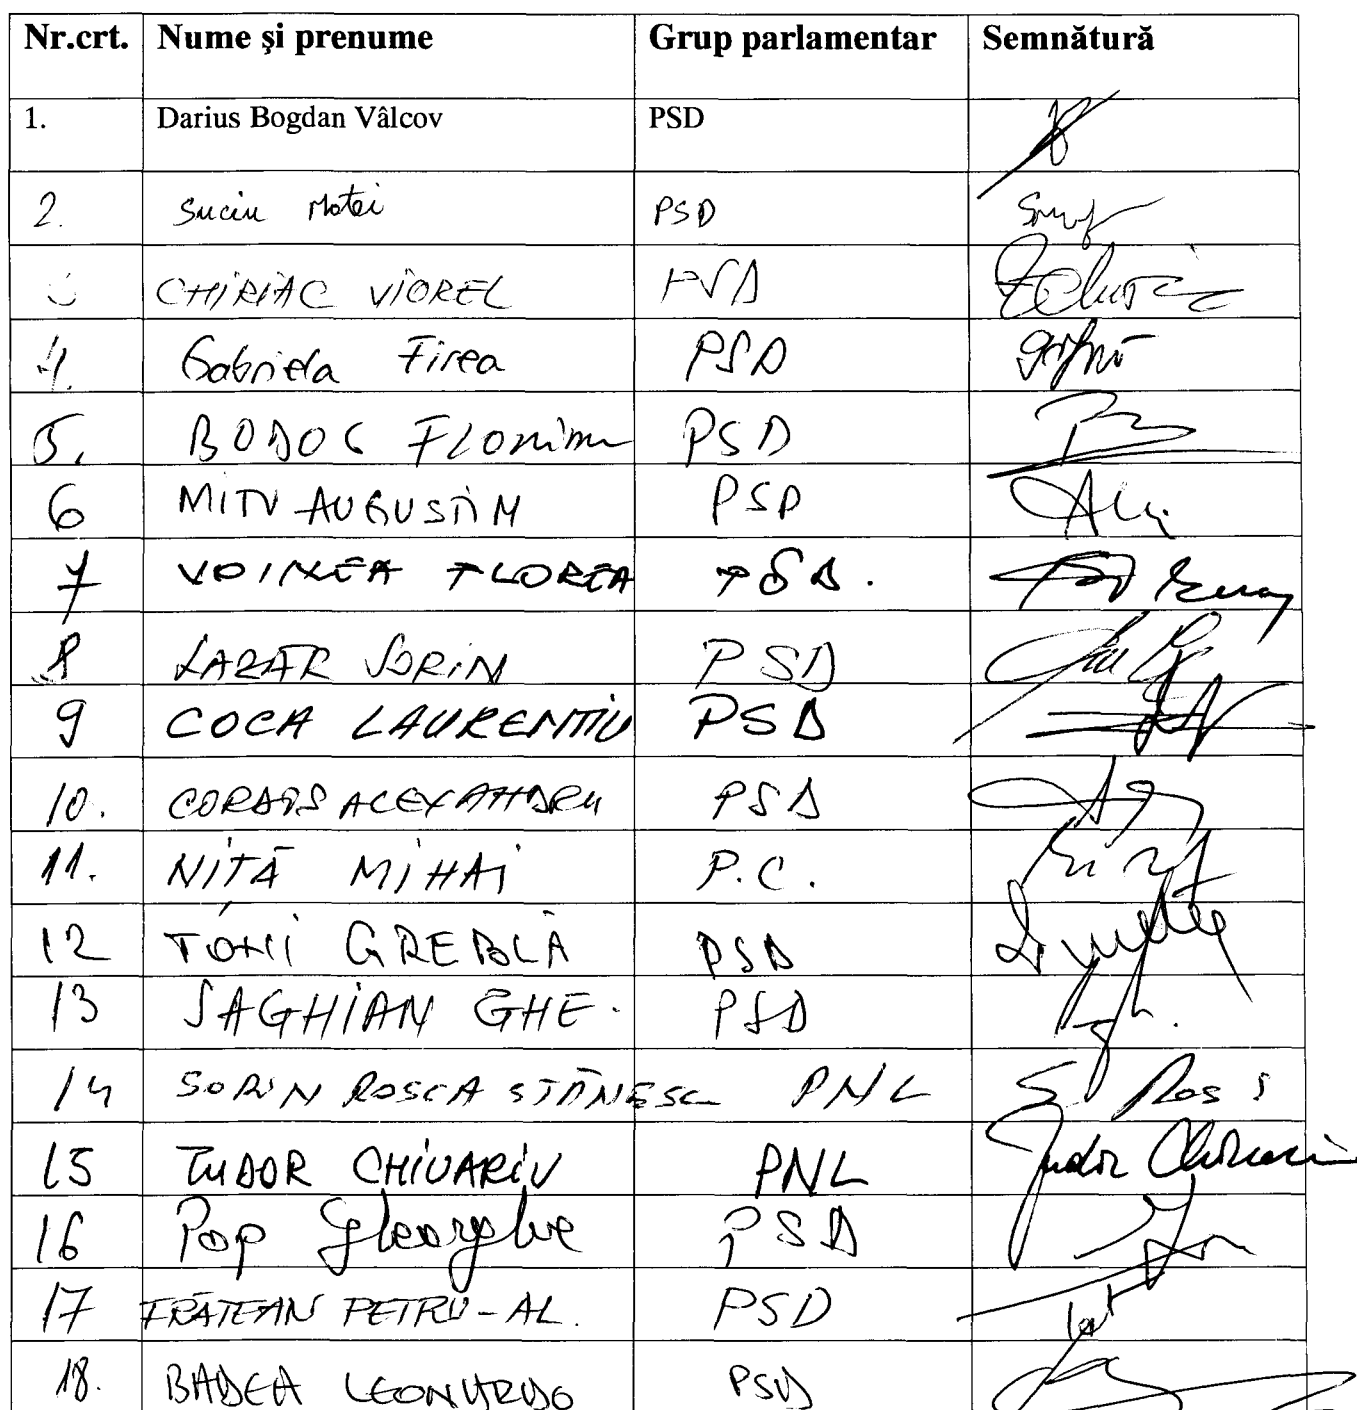 Nr.crt. Nume şi prenume Grup parlamentar Semnătură
1. Darius Bogdan Vâlcov PSD
2. Suciu Matei PSD
CHIRIAC VIOREL PSD
4. Gabriela Firea PSD
5. BODOG Florian PSD
6 MITU AUGUSTIN PSD
7 VOINEA FLOREA PSD.
8 LAZĂR SORIN PSD
9 COCA LAURENTIU PSD
10. CORDOȘ ALEXANDRU PSD
11. NIȚĂ MIHAI P.C.
12 TONI GREBLĂ PSD
13 SAGHIAN GHE. PSD
14 SORIN ROSCA STĂNESCU PNL
15 TUDOR CHIUARIU PNL Tudor Chiuariu
16 Pop Gheorghe PSD
17 FRĂTEAN PETRU-AL. PSD
18. BADEA LEONARDO PSD